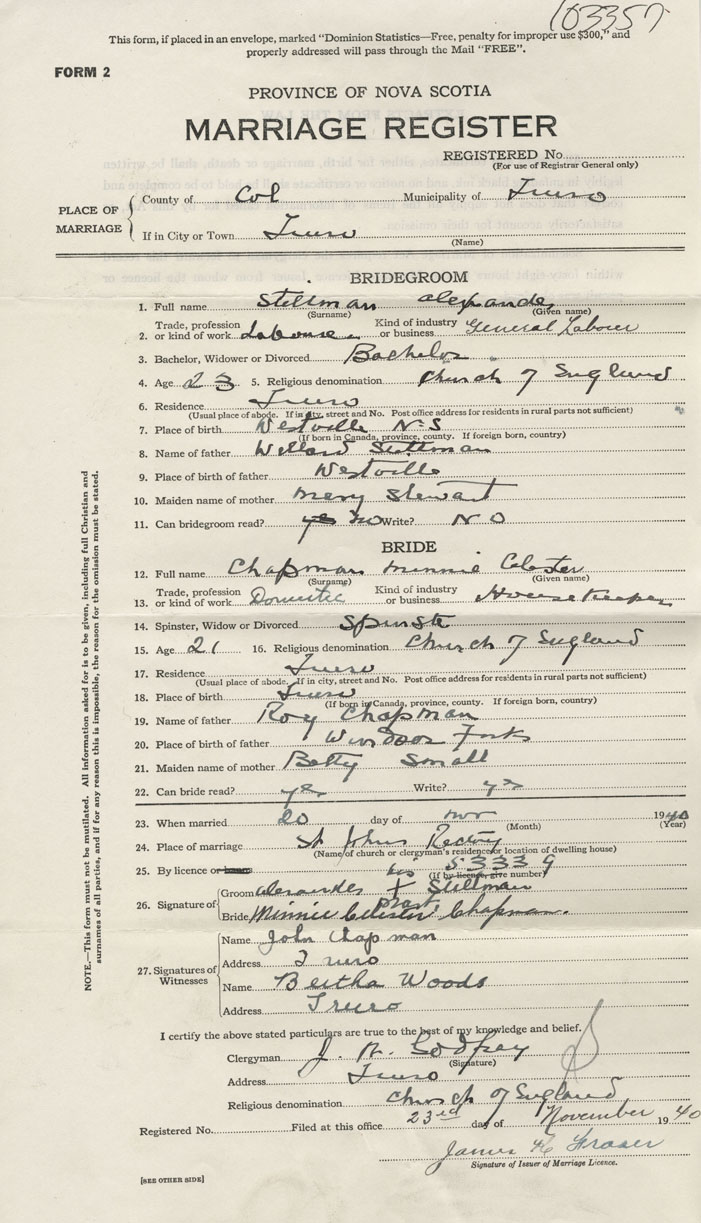 103357
This form, if placed in an envelope, marked "Dominion Statistics—Free, penalty for improper use $300," and
properly addressed will pass through the Mail "FREE".
FORM 2
PROVINCE OF NOVA SCOTIA
MARRIAGE REGISTER
REGISTERED No.
(For use of Registrar General only)
PLACE OF MARRIAGE
County of Col Municipality of Truro
If in City or Town Truro
(Name)
BRIDEGROOM
1. Full name Stillman Alexander
(Surname) (Given name)
2. Trade, profession or kind of work Labourer Kind of industry or business General Laborer
3. Bachelor, Widower or Divorced Bachelor
4. Age 23 5. Religious denomination Church of England
6. Residence Truro
(Usual place of abode. If in city, street and No. Post office address for residents in rural parts not sufficient)
7. Place of birth Westville N.S
(If born in Canada, province, county. If foreign born, country)
8. Name of father Willard Stillman
9. Place of birth of father Westville
10. Maiden name of mother Mery Stewart
11. Can bridegroom read? yes no Write? NO
BRIDE
12. Full name Chapman Minnie Celester
(Surname) (Given name)
13. Trade, profession or kind of work Domestic Kind of industry or business Housekeeper
14. Spinster, Widow or Divorced Spinster
15. Age 21 16. Religious denomination Church of England
17. Residence Truro
(Usual place of abode. If in city, street and No. Post office address for residents in rural parts not sufficient)
18. Place of birth Truro
(If born in Canada, province, county. If foreign born, country)
19. Name of father Roy Chapman
20. Place of birth of father Windsor Forks
21. Maiden name of mother Betty Small
22. Can bride read? yes Write? yes
23. When married 20 day of Nov 1940
(Month) (Year)
24. Place of marriage St Johns Rectory
(Name of church or clergyman's residence or location of dwelling house)
25. By licence or banns 53339
(If by licence, give number)
26. Signature of
his
Groom Alexander X Stillman
mark
Bride Minnie Celester Chapman.
27. Signatures of Witnesses
Name John Chapman
Address Truro
Name Bertha Woods
Address Truro
I certify the above stated particulars are true to the best of my knowledge and belief.
Clergyman J. Godfrey
(Signature)
Address Truro
Religious denomination Church of England
Registered No. Filed at this office 23rd day of November 1940
James Fraser
Signature of Issuer of Marriage Licence.
[SEE OTHER SIDE]
NOTE.—This form must not be mutilated. All information asked for is to be given, including full Christian and
surnames of all parties, and if for any reason this is impossible, the reason for the omission must be stated.